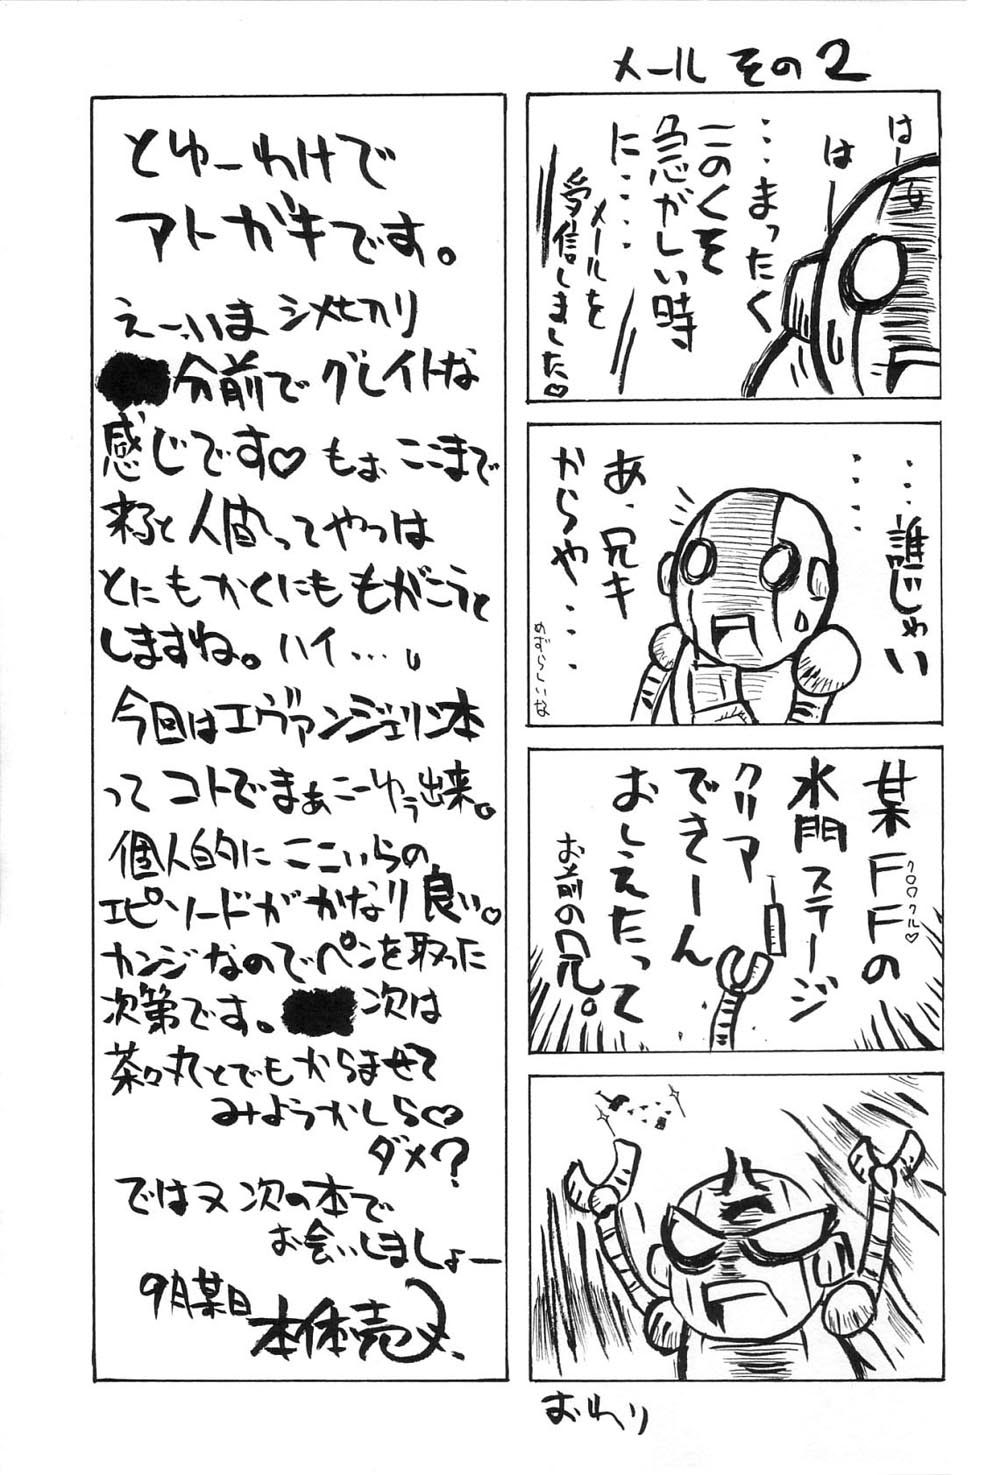 メール その2
はーー
はー
…まったく
このくそ
急がしい時
に‥‥
メールを
受信しました♡
‥‥‥
…誰じゃい
あ、兄キ
からや‥‥
めずらしいな
某FFの
クロロクル♡
水門ステージ
クリア
できーん
おしえたって
お前の兄。
おわり
とゆーわけで
アトガキです。
えーっいま シメセカリ
分前で グレイトな
感じです♡ もぉ ここまで
来ると人間ってやつは
とにもかくにも もがこうと
しますね。ハイ…。
今回はエヴァンジェリン本
って コトで まぁこーゆう出来。
個人的に ここいらの
エピソードが かなり良い。
カンジなので ペンを取った
次第です。 次は
茶々丸とでも からませて
みようかしら♡
ダメ?
ではヌ 次の本で
お会いしましょー
9月某日
本体売ヌ、